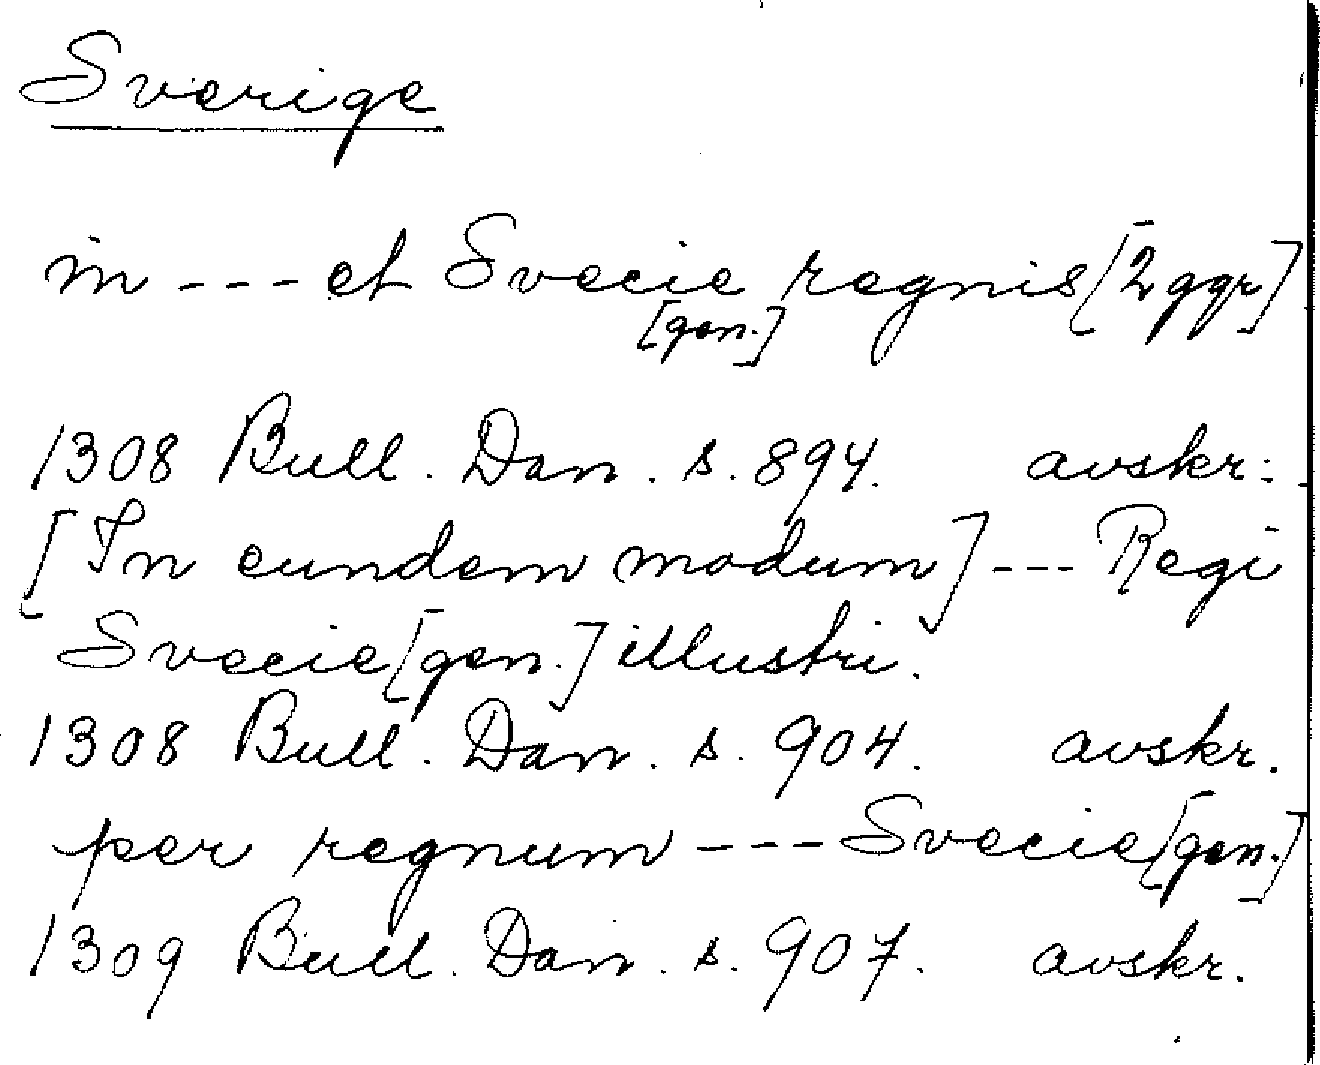 Sverige
in --- et Svecie regnis [2 ggr]
[gen.]
1308 Bull. Dan. s. 894. avskr.
[In eundem modum] --- Regi
Svecie [gen.] illustri.
1308 Bull. Dan. s. 904. avskr.
per regnum --- Svecie [gen.]
1309 Bull. Dan. s. 907. avskr.